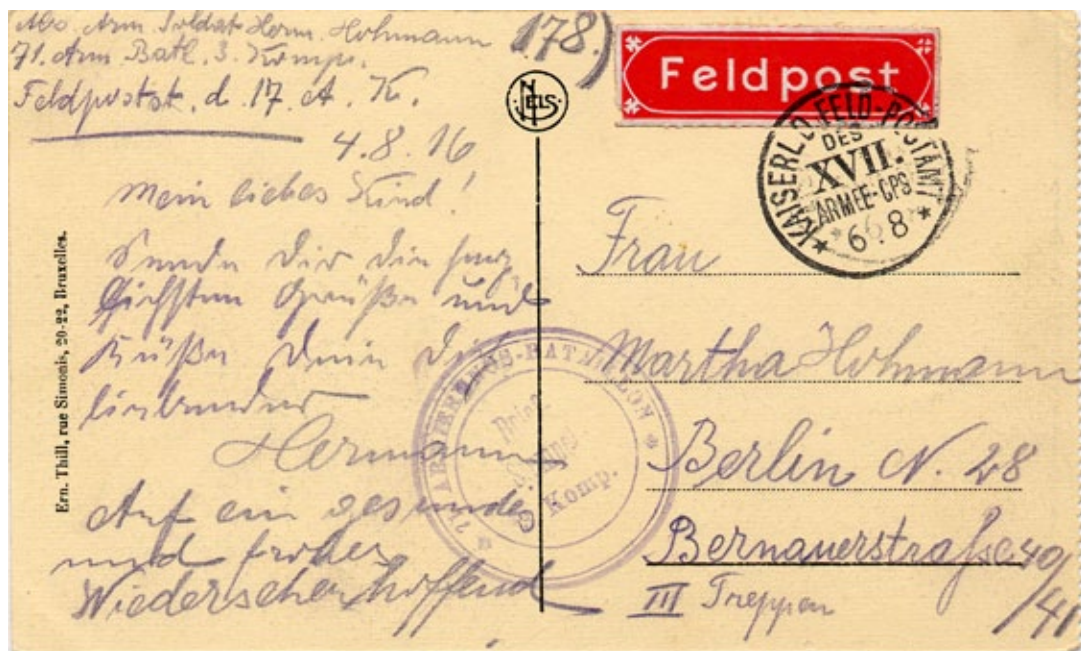 Abs. Arm. Soldat Herm. Hohmann
71. Arm. Batl. 3. Komp.
Feldpostst. d. 17. A. K.
178.)
4.8.16
Mein liebes Kind!
Sende dir die herz
lichsten Grüße und
Küße Dein dich
liebender
Hermann
Auf ein gesundes
und frohes
Wiedersehen hoffend
Ern. Thill, rue Simonis, 20-22, Bruxelles.
NELS
Feldpost
KAISERL. D. FELD-POSTAMT
DES
XVII.
ARMEE-CPS
6.8
71. ARMIERUNGS-BATAILLON
Briefstempel
3. Komp.
Frau
Martha Hohmann
Berlin N. 28
Bernauerstraße 40
/41
III Treppen